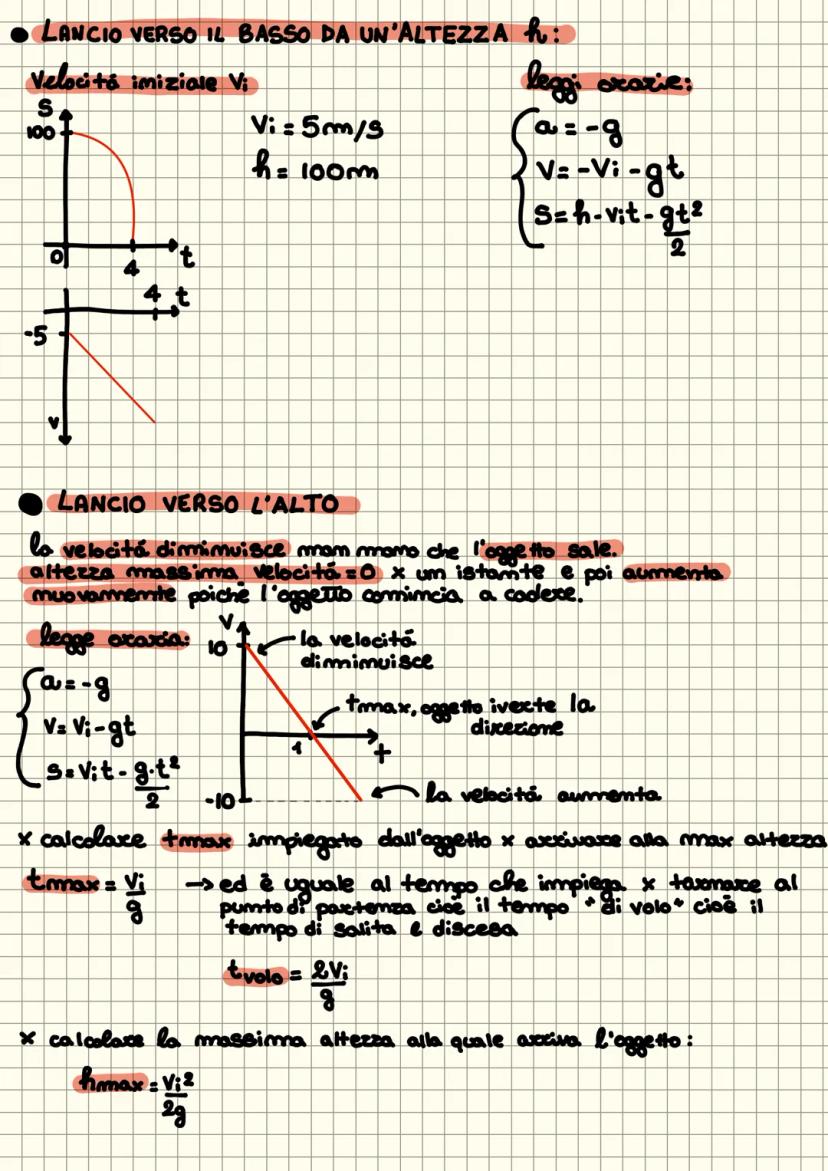 ● LANCIO VERSO IL BASSO DA UN'ALTEZZA h:
Velocitá iniziale Vi
leggi orarie:
S
100
0
4
t
Vi = 5m/s
h = 100m
a = -g
V = -Vi - gt
S = h - vit - gt²/2
4 t
-5
v
● LANCIO VERSO L'ALTO
la velocitá diminuisce man mano che l'oggetto sale.
altezza massima velocitá = 0 x un istante e poi aumenta
nuovamente poiché l'oggetto comincia a cadere.
legge oraria:
a = -g
V = Vi - gt
S = Vit - g·t²/2
V
10
la velocitá
diminuisce
tmax, oggetto iverte la
direzione
1
t
-10
la velocitá aumenta
x calcolare tmax impiegato dall'oggetto x arrivare alla max altezza
tmax = Vi/g → ed è uguale al tempo che impiega x tornare al
punto di partenza cioè il tempo "di volo" cioè il
tempo di salita e discesa
tvolo = 2Vi/g
x calcolare la massima altezza alla quale arriva l'oggetto:
hmax = Vi²/2g